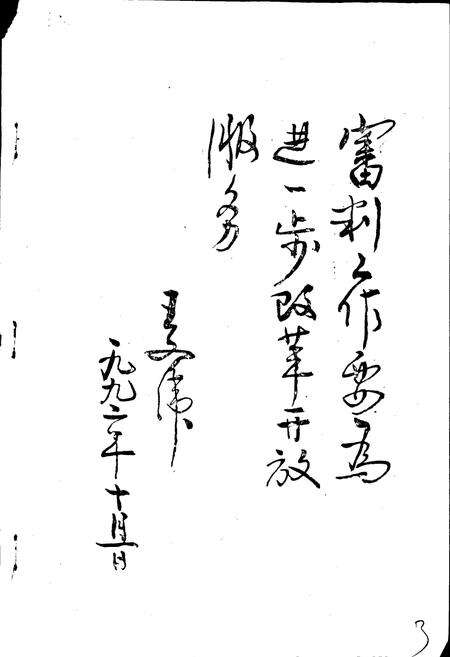 審判工作要為
進一步改革开放
服务
王文
一九九二年十月一日
3